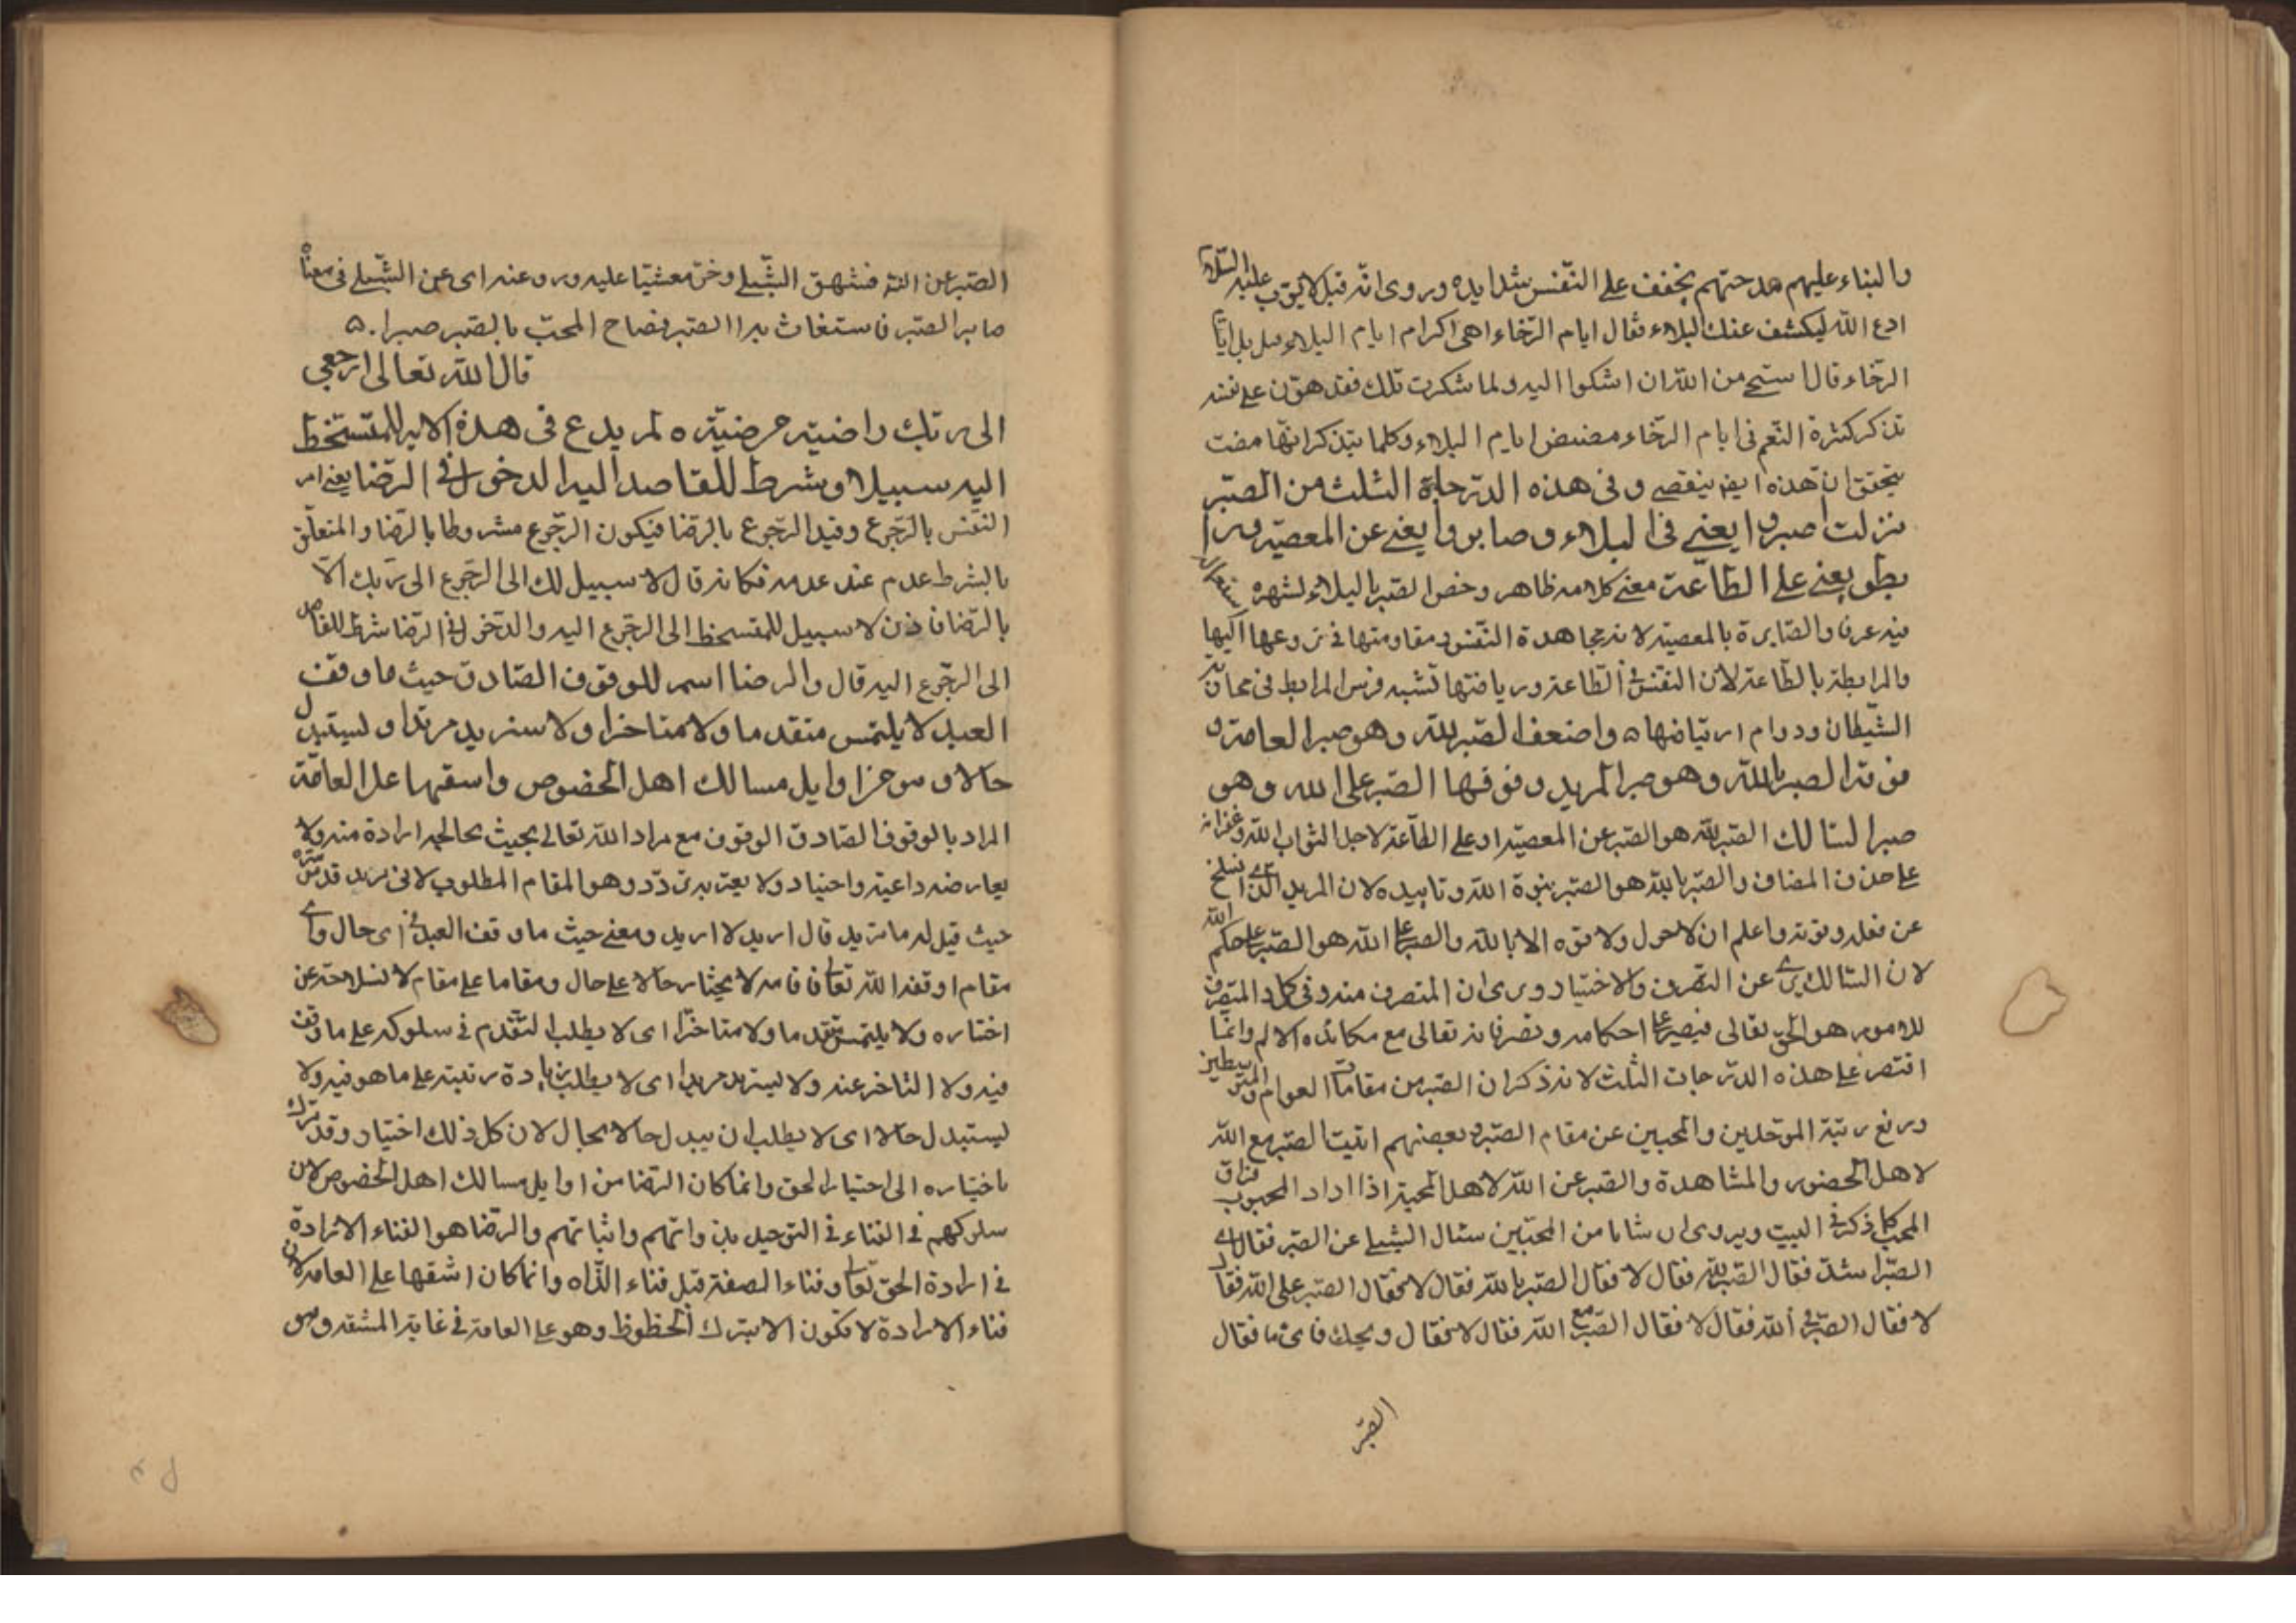 والبناء عليهم مدحتهم يخفف على النفس شدايده وروى انه قيل لايوب عليه السلام
ادع الله ليكشف عنك البلاء فقال ايام الرخاء اهى اكرام ايام البلاء قيل بل ايام
الرخاء قال استحى من الله ان اشكوا اليه ولما شكرت تلك فقد هون على نفسه
تذكر كثرة النعم فى ايام الرخاء مضيض ايام البلاء وكلما يتذكر انها مضت
يتحقق ان هذه ايضا ينقضى وفى هذه الدرجات الثلث من الصبر
نزلت اصبروا يعنى فى البلاء وصابروا يعنى عن المعصية ورا
بطوا يعنى على الطاعة معنى كلامه ظاهر وخص الصبر بالبلاء لشهرة استعماله
فيه عرفا والصابرة بالمعصية لانه مجاهدة النفس ومقاومتها فى نزوعها اليها
والمرابطة بالطاعة لان النفس فى الطاعة ورياضتها تشبه فرس المرابط فى محاربة
الشيطان ودوام ارتياضها ه واضعف الصبر لله وهو صبر العامة و
فوقه الصبر بالله وهو صبر المريد وفوقها الصبر على الله وهو
صبر السالك الصبر لله هو الصبر عن المعصية او على الطاعة لاجل الثواب لله وغفرانه
على حذف المضاف والصبر بالله هو الصبر بقوة الله وتاييده لان المريد الذى انسلخ
عن فعله وقوته واعلم ان لا حول ولا قوه الا بالله والصبر على الله هو الصبر على حكم الله
لان السالك يرى عن التصرف والاختيار ويرى ان المتصرف منه وفى كل والمتصرف
للامور هو الحق تعالى فيصبر على احكامه وتصرفاته تعالى مع مكائده الالم وانما
اقتصر على هذه الدرجات الثلث لانه ذكر ان الصبر من مقامات العوام والمتوسطين
ورفع رتبة الموحدين والمحبين عن مقام الصبر وبعضهم اثبت الصبر مع الله
لاهل الحضور والمشاهدة والصبر عن الله لاهل المحبة اذا اراد المحبوب فراق
المحب كما ذكر فى البيت ويروى ان شابا من المحبين سئال الشبلى عن الصبر فقال اى
الصبر اشد فقال الصبر لله فقال لا فقال الصبر بالله فقال لا فقال الصبر على الله فقال
لا فقال الصبر فى الله فقال لا فقال الصبر مع الله فقال لا فقال ويحك فاى ما فقال
الصبر
الصبر عن الله فشهق الشبلى وخر مغشيا عليه ورو عنه اى عن الشبلى فى معناه
صابر الصبر فاستغاث به الصبر فصاح المحب بالصبر صبرا . ه
قال الله تعالى ارجعى
الى ربك راضية مرضية ه لم يدع فى هذه الاية للمتسخط
اليه سبيلا وشرط للقاصد اليه الدخول فى الرضا يعنى امر
النفس بالرجوع وقيد الرجوع بالرضا فيكون الرجوع مشروطا بالرضا والمتعلق
بالشرط عدم عند عدمه فكانه قال لا سبيل لك الى الرجوع الى ربك الا
بالرضا فاذن لا سبيل للمتسخط الى الرجوع اليه والدخول فى الرضا شرط للقاصد
الى الرجوع اليه قال والرضا اسم للوقوف الصادق حيث ما وقف
العبد لا يلتمس متقدما ولا متاخرا ولا يستزيد مزيدا ولا يستبدل
حالا وهو من اوايل مسالك اهل الخصوص واشقها على العامة
المراد بالوقوف الصادق الوقوف مع مراد الله تعالى بحيث لا يخالجه ارادة منه ولا
يعارضه داعية واختيار ولا يعتريه تردد وهو المقام المطلوب لابى يزيد قدس سره
حيث قيل له ما تريد قال اريد لا اريد ومعنى حيث ما وقف العبد فى اى حال واى
مقام اوقفه الله تعالى فاقامه لا يختار حالا على حال ومقاما على مقام لانسلاخه عن
اختياره ولا يلتمس متقدما ولا متاخرا اى لا يطلب التقدم فى سلوكه على ما وقف
فيه ولا التاخر عنه ولا يستزيد مزيدا اى لا يطلب زيادة رتبته على ما هو فيه ولا
يستبدل حالا اى لا يطلب ان يبدل حالا بحال لان كل ذلك اختيار وقد ترك
اختياره الى اختيار الحق وانما كان الرضا من اوايل مسالك اهل الخصوص لان
سلوكهم فى الفناء فى التوحيد بذواتهم واثباتهم والرضا هو الفناء الارادة
فى ارادة الحق تعالى وفناء الصفة قبل فناء الذات وانما كان اشقها على العامه لان
فناء الارادة لا تكون الا بترك الحظوظ وهو على العامة فى غاية المشقه وهو